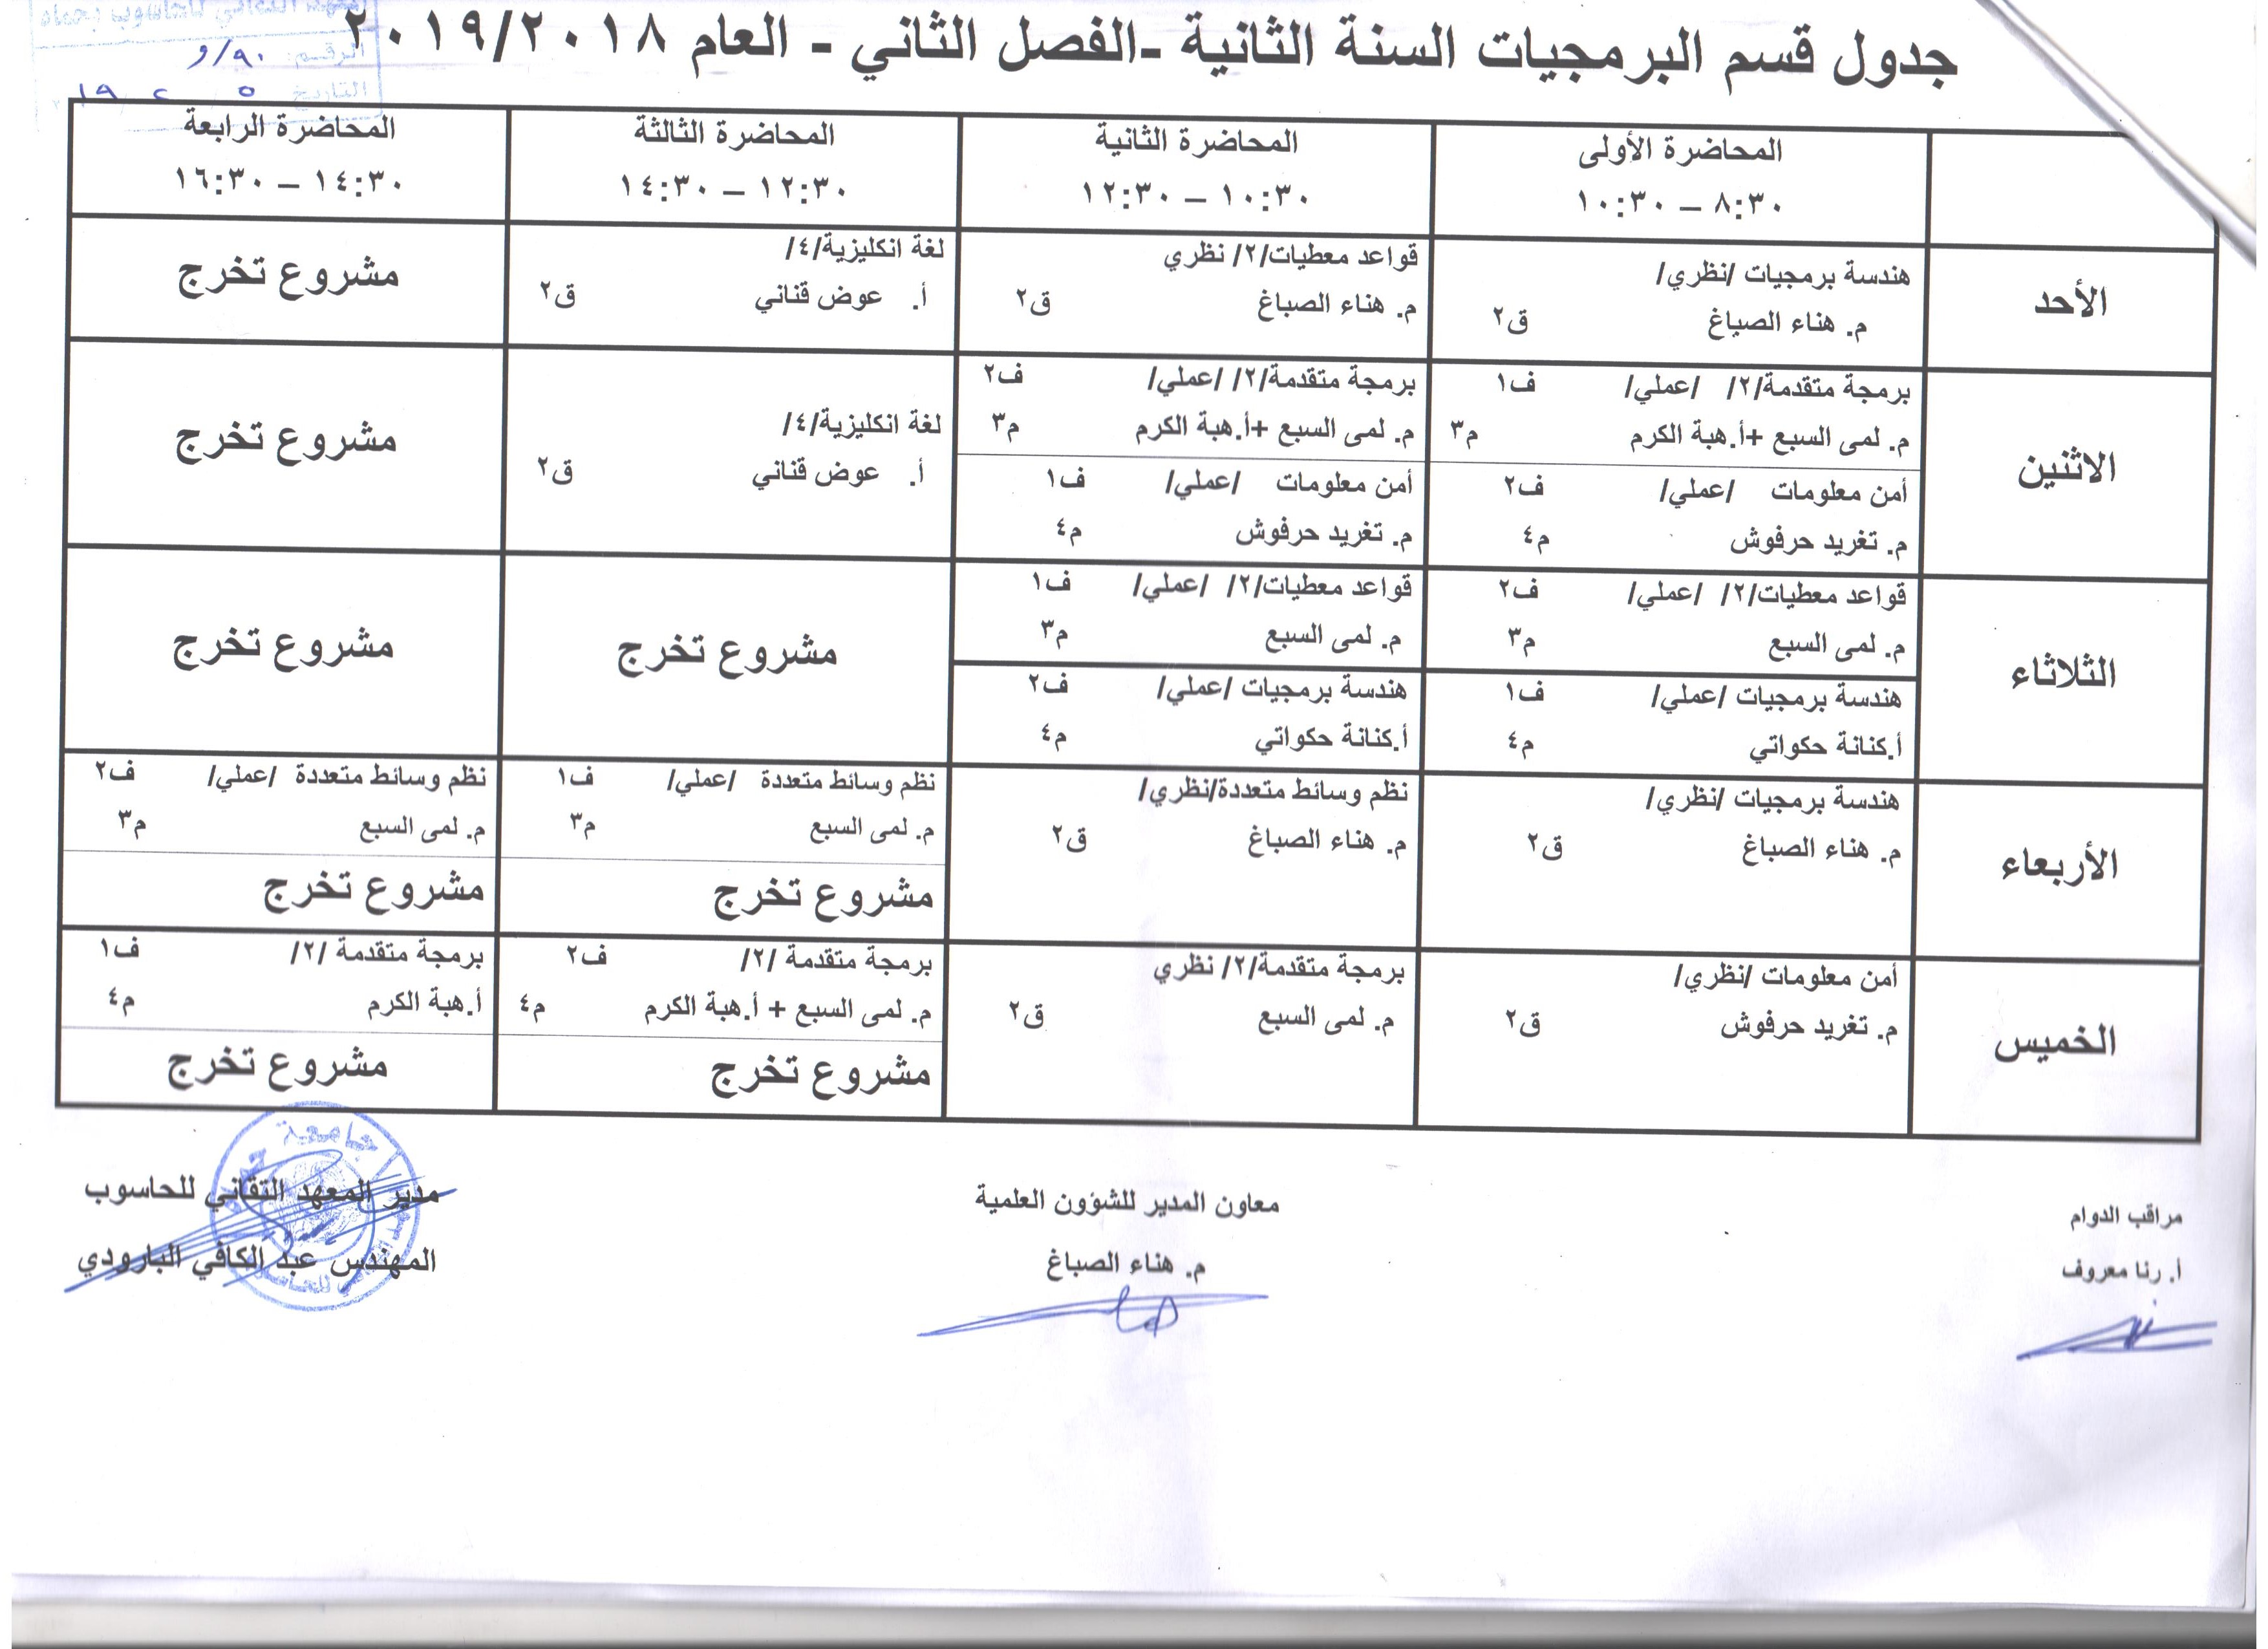 جدول قسم البرمجيات السنة الثانية -الفصل الثاني - العام ٢٠١٩/٢٠١٨
الرقم: ٩٠/و
التاريخ ٥ ١٩
المحاضرة الأولى
٨:٣٠ – ١٠:٣٠
المحاضرة الثانية
١٠:٣٠ – ١٢:٣٠
المحاضرة الثالثة
١٢:٣٠ – ١٤:٣٠
المحاضرة الرابعة
١٤:٣٠ – ١٦:٣٠
الأحد
هندسة برمجيات /نظري/
م. هناء الصباغ ق٢
قواعد معطيات/٢/ نظري
م. هناء الصباغ ق٢
لغة انكليزية/٤/
أ. عوض قناني ق٢
مشروع تخرج
الاثنين
برمجة متقدمة/٢/ /عملي/ ف١
م. لمى السبع +أ.هبة الكرم م٣
أمن معلومات /عملي/ ف٢
م. تغريد حرفوش م٤
برمجة متقدمة/٢/ /عملي/ ف٢
م. لمى السبع +أ.هبة الكرم م٣
أمن معلومات /عملي/ ف١
م. تغريد حرفوش م٤
لغة انكليزية/٤/
أ. عوض قناني ق٢
مشروع تخرج
الثلاثاء
قواعد معطيات/٢/ /عملي/ ف٢
م. لمى السبع م٣
هندسة برمجيات /عملي/ ف١
أ.كنانة حكواتي م٤
قواعد معطيات/٢/ /عملي/ ف١
م. لمى السبع م٣
هندسة برمجيات /عملي/ ف٢
أ.كنانة حكواتي م٤
مشروع تخرج
مشروع تخرج
الأربعاء
هندسة برمجيات /نظري/
م. هناء الصباغ ق٢
نظم وسائط متعددة/نظري/
م. هناء الصباغ ق٢
نظم وسائط متعددة /عملي/ ف١
م. لمى السبع م٣
مشروع تخرج
نظم وسائط متعددة /عملي/ ف٢
م. لمى السبع م٣
مشروع تخرج
الخميس
أمن معلومات /نظري/
م. تغريد حرفوش ق٢
برمجة متقدمة/٢/ نظري
م. لمى السبع ق٢
برمجة متقدمة /٢/ ف٢
م. لمى السبع + أ.هبة الكرم م٤
مشروع تخرج
برمجة متقدمة /٢/ ف١
أ.هبة الكرم م٤
مشروع تخرج
مراقب الدوام
أ. رنا معروف
معاون المدير للشؤون العلمية
م. هناء الصباغ
مدير المعهد التقاني للحاسوب
المهندس عبد الكافي البارودي
جامعة